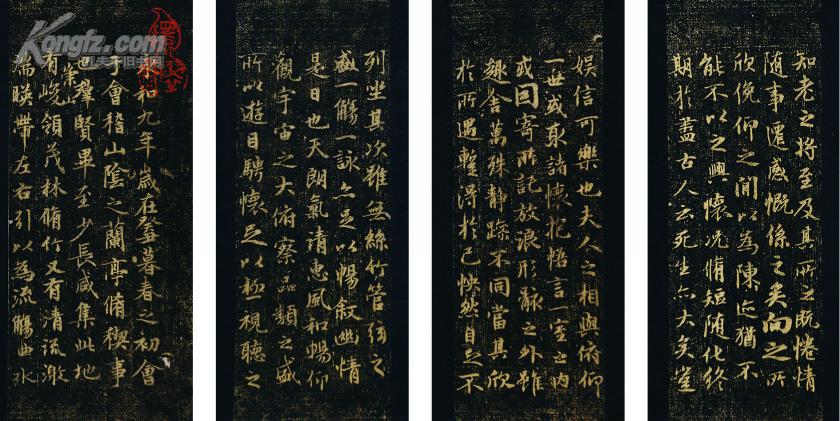 Kongfz.com
孔夫子旧书网
永和九年歲在癸丑暮春之初會
于會稽山陰之蘭亭脩稧事
也群賢畢至少長咸集此地
有崇山峻領茂林脩竹又有清流激
湍暎帶左右引以為流觴曲水
列坐其次雖無絲竹管弦之
盛一觴一詠亦足以暢敘幽情
是日也天朗氣清惠風和暢仰
觀宇宙之大俯察品類之盛
所以遊目騁懷足以極視聽之
娛信可樂也夫人之相與俯仰
一世或取諸懷抱悟言一室之內
或因寄所託放浪形骸之外雖
趣舍萬殊靜躁不同當其欣
於所遇蹔得於己怏然自足不
知老之將至及其所之既惓情
隨事遷感慨係之矣向之所
欣俛仰之間以為陳迹猶不
能不以之興懷況脩短隨化終
期於盡古人云死生亦大矣豈